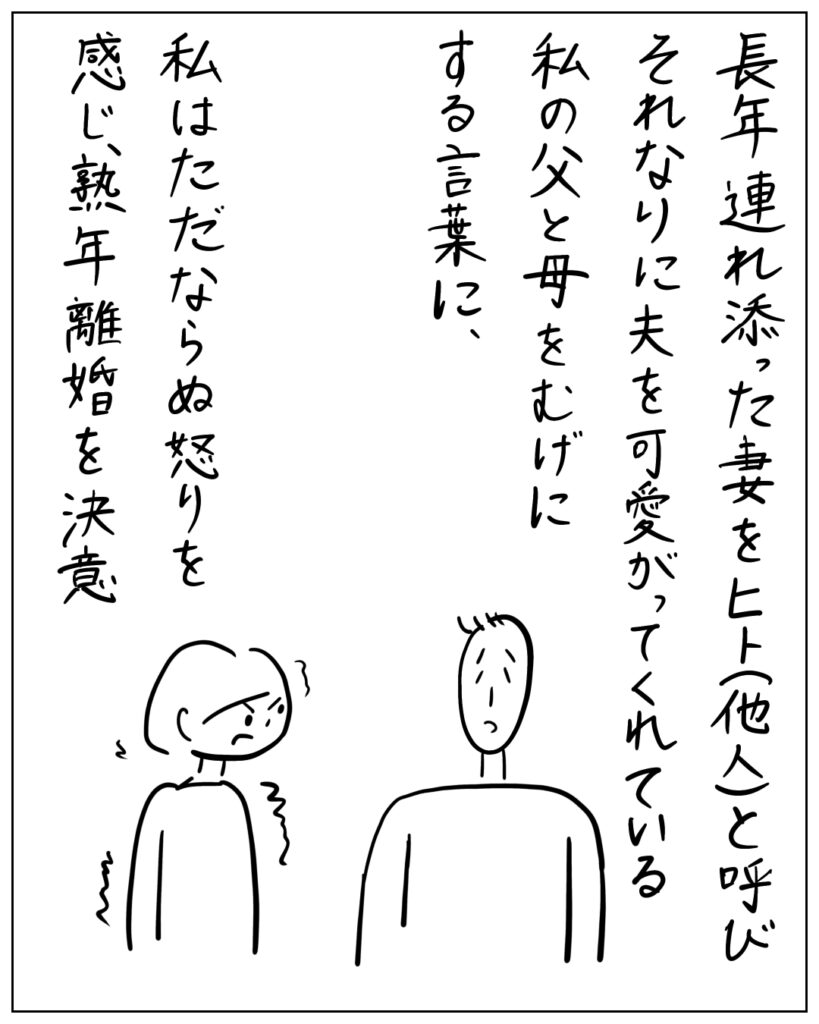 長年連れ添った妻をヒト(他人)と呼び
それなりに夫を可愛がってくれている
私の父と母をむげに
する言葉に、
私はただならぬ怒りを
感じ、熟年離婚を決意